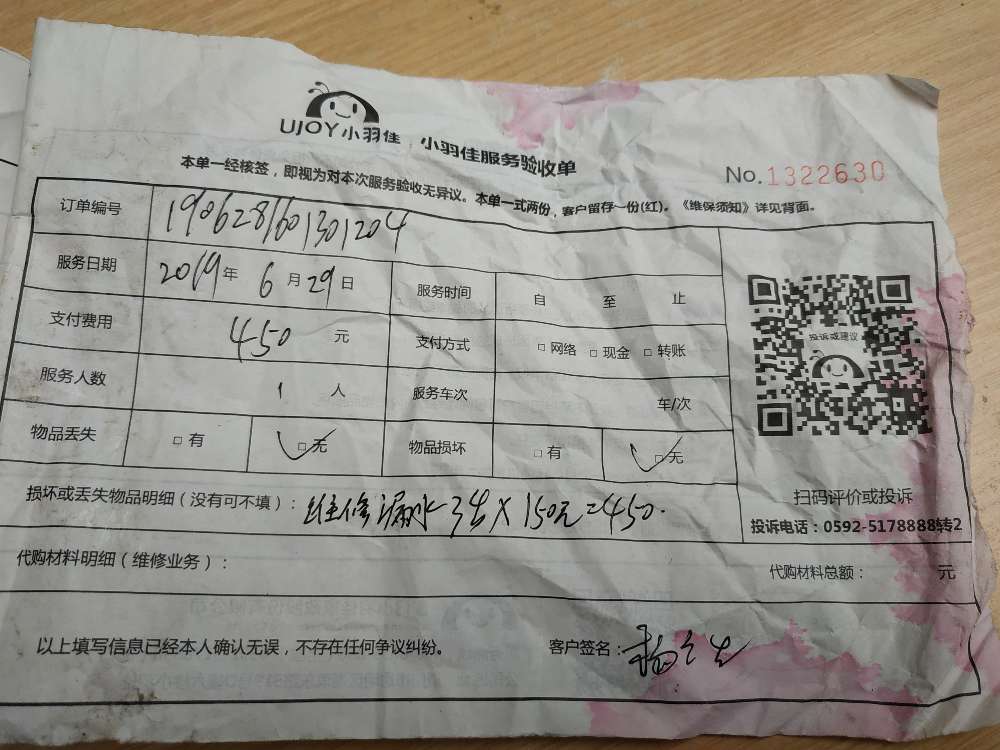 UJOY小羽佳 小羽佳服务验收单
本单一经核签，即视为对本次服务验收无异议。本单一式两份，客户留存一份(红)。《维保须知》详见背面。
No.1322630
订单编号 1906281601301204
服务日期 2019年 6月29日 服务时间 自 至 止
支付费用 450 元 支付方式 □网络 □现金 □转账
服务人数 1 人 服务车次 车/次
物品丢失 □有 □无 物品损坏 □有 □无
投诉或建议
扫码评价或投诉
投诉电话：0592-5178888转2
损坏或丢失物品明细（没有可不填）：维修漏水3处X150元=450.
代购材料明细（维修业务）： 代购材料总额： 元
以上填写信息已经本人确认无误，不存在任何争议纠纷。 客户签名：